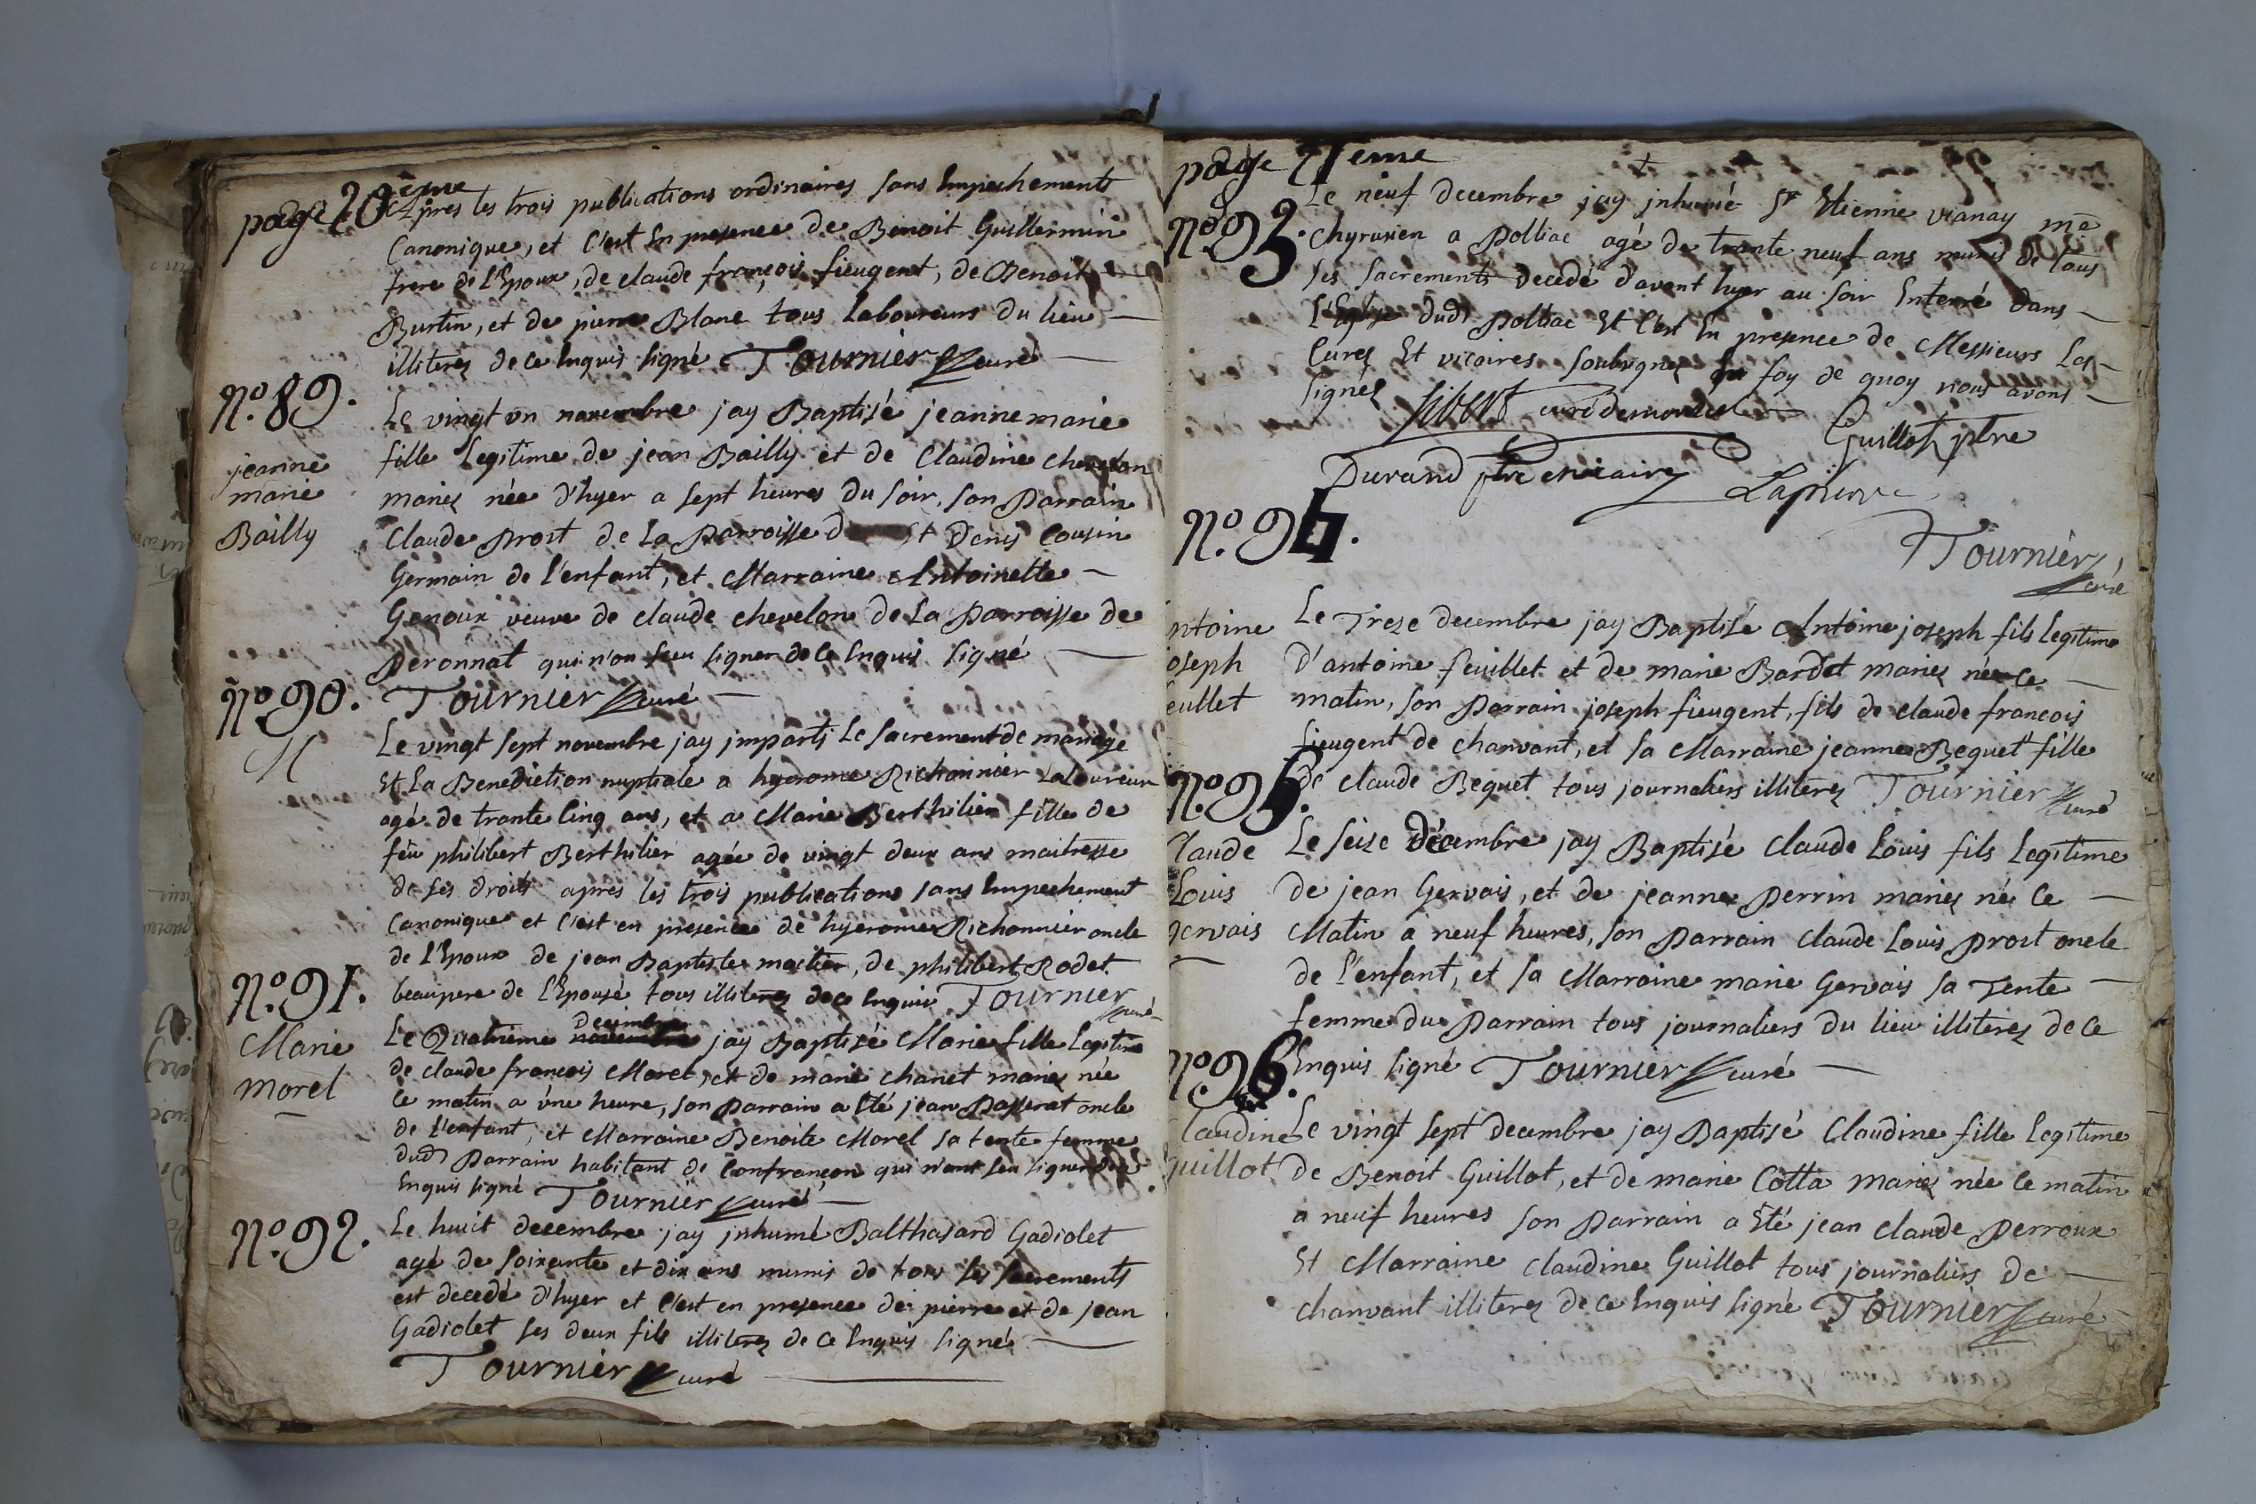 page 20ème
apres les trois publications ordinaires sans Empechements
Canonique, et C'est En presence de Benoit Guillermin
frere de l'Epoux, de claude françois fieugent, de Benoit
Burtin, et de pierre Blanc tous Laboureurs du lieu
illiterez de ce Enquis signé Tournier curé
n.º 89.
jeanne
marie
Bailly
Le vingt un novembre jay Baptisé jeanne marie
fille Legitime de jean Bailly et de Claudine chevelon
mariez née d'hyer a sept heures du soir, son Parrain
Claude Prost de La Parroisse de St Denis Cousin
Germain de l'enfant, et Marraine Antoinette
Genoux veuve de claude chevelon de La Parroisse de
Peronnat qui n'on sceu signer de ce Enquis signé
Tournier curé
n.º 90.
M
Le vingt sept novembre jay imparti Le sacrement de mariage
Et La Benediction nuptiale a hyerome Richonnier Laboureur
agé de trante Cinq ans, et a Marie Berthilier fille de
feu philibert Berthilier agée de vingt deux ans maitresse
de ses droits apres les trois publications sans Empechement
Canonique et C'est en presence de hyerome Richonnier oncle
de l'Epoux de jean Baptiste , de philibert Rodet
beaupere de l'Epouse tous illiterez de ce Enquis Tournier curé
n.º 91.
Marie
Morel
Le Quatrieme novembre decembre jay Baptisé Marie fille Legitime
de claude françois Morel, et de marie chanet mariez née
Ce matin a une heure, son Parrain a Eté jean Passerat oncle
de l'enfant, et Marraine Benoite Morel sa tente femme
dud Parrain habitant de Confrançon qui n'ont sceu signer de ce
Enquis signé Tournier curé
n.º 92.
Le huit decembre jay inhumé Balthasard Gadiolet
agé de soixante et dix ans munis de tous ses sacrements
est decedé d'hyer et C'est en presence de pierre et de jean
Gadiolet ses deux fils illiterez de ce Enquis signé
Tournier curé
page 21eme
n.º 93.
Le neuf decembre jay inhumé Sr Etienne vianay me
Chyrurien a Polliac agé de trante neuf ans munis de tous
ses sacrements decedé d'avant hyer au soir Enterré dans
l'Eglise dud Polliac Et C'est En presence de Messieurs Les
Curez Et vicaires soubsignez En foy de quoy nous avons
signez curé Guillot ptre
Durand ptre et vicaire Lapierre
Tournier curé
n.º 94.
ntoine
oseph
eullet
Le Treze decembre jay Baptisé Antoine joseph fils Legitime
d'antoine feuillet et de marie Bardet mariez née ce
matin, son Parrain joseph fieugent, fils de claude francois
fieugent de chanvant, et sa Marraine jeanne Bequet fille
de claude Bequet tous journaliers illiterez Tournier curé
n.º 95.
Claude
Louis
gervais
Le seise décembre jay Baptisé Claude Louis fils Legitime
de jean Gervais, et de jeanne Perrin mariez né Ce
Matin a neuf heures, son Parrain Claude Louis Prost oncle
de l'enfant, et sa Marraine marie Gervais sa Tente
femme du Parrain tous journaliers du lieu illiterez de Ce
Enquis signé Tournier curé
n.º 96.
laudine
guillot
Le vingt sept decembre jay Baptisé Claudine fille Legitime
de Benoit Guillot, et de marie Cotta mariez née Ce matin
a neuf heures son Parrain a Eté jean claude Perroux
Et Marraine Claudine Guillot tous journaliers de
chanvant illiterez de Ce Enquis signé Tournier curé